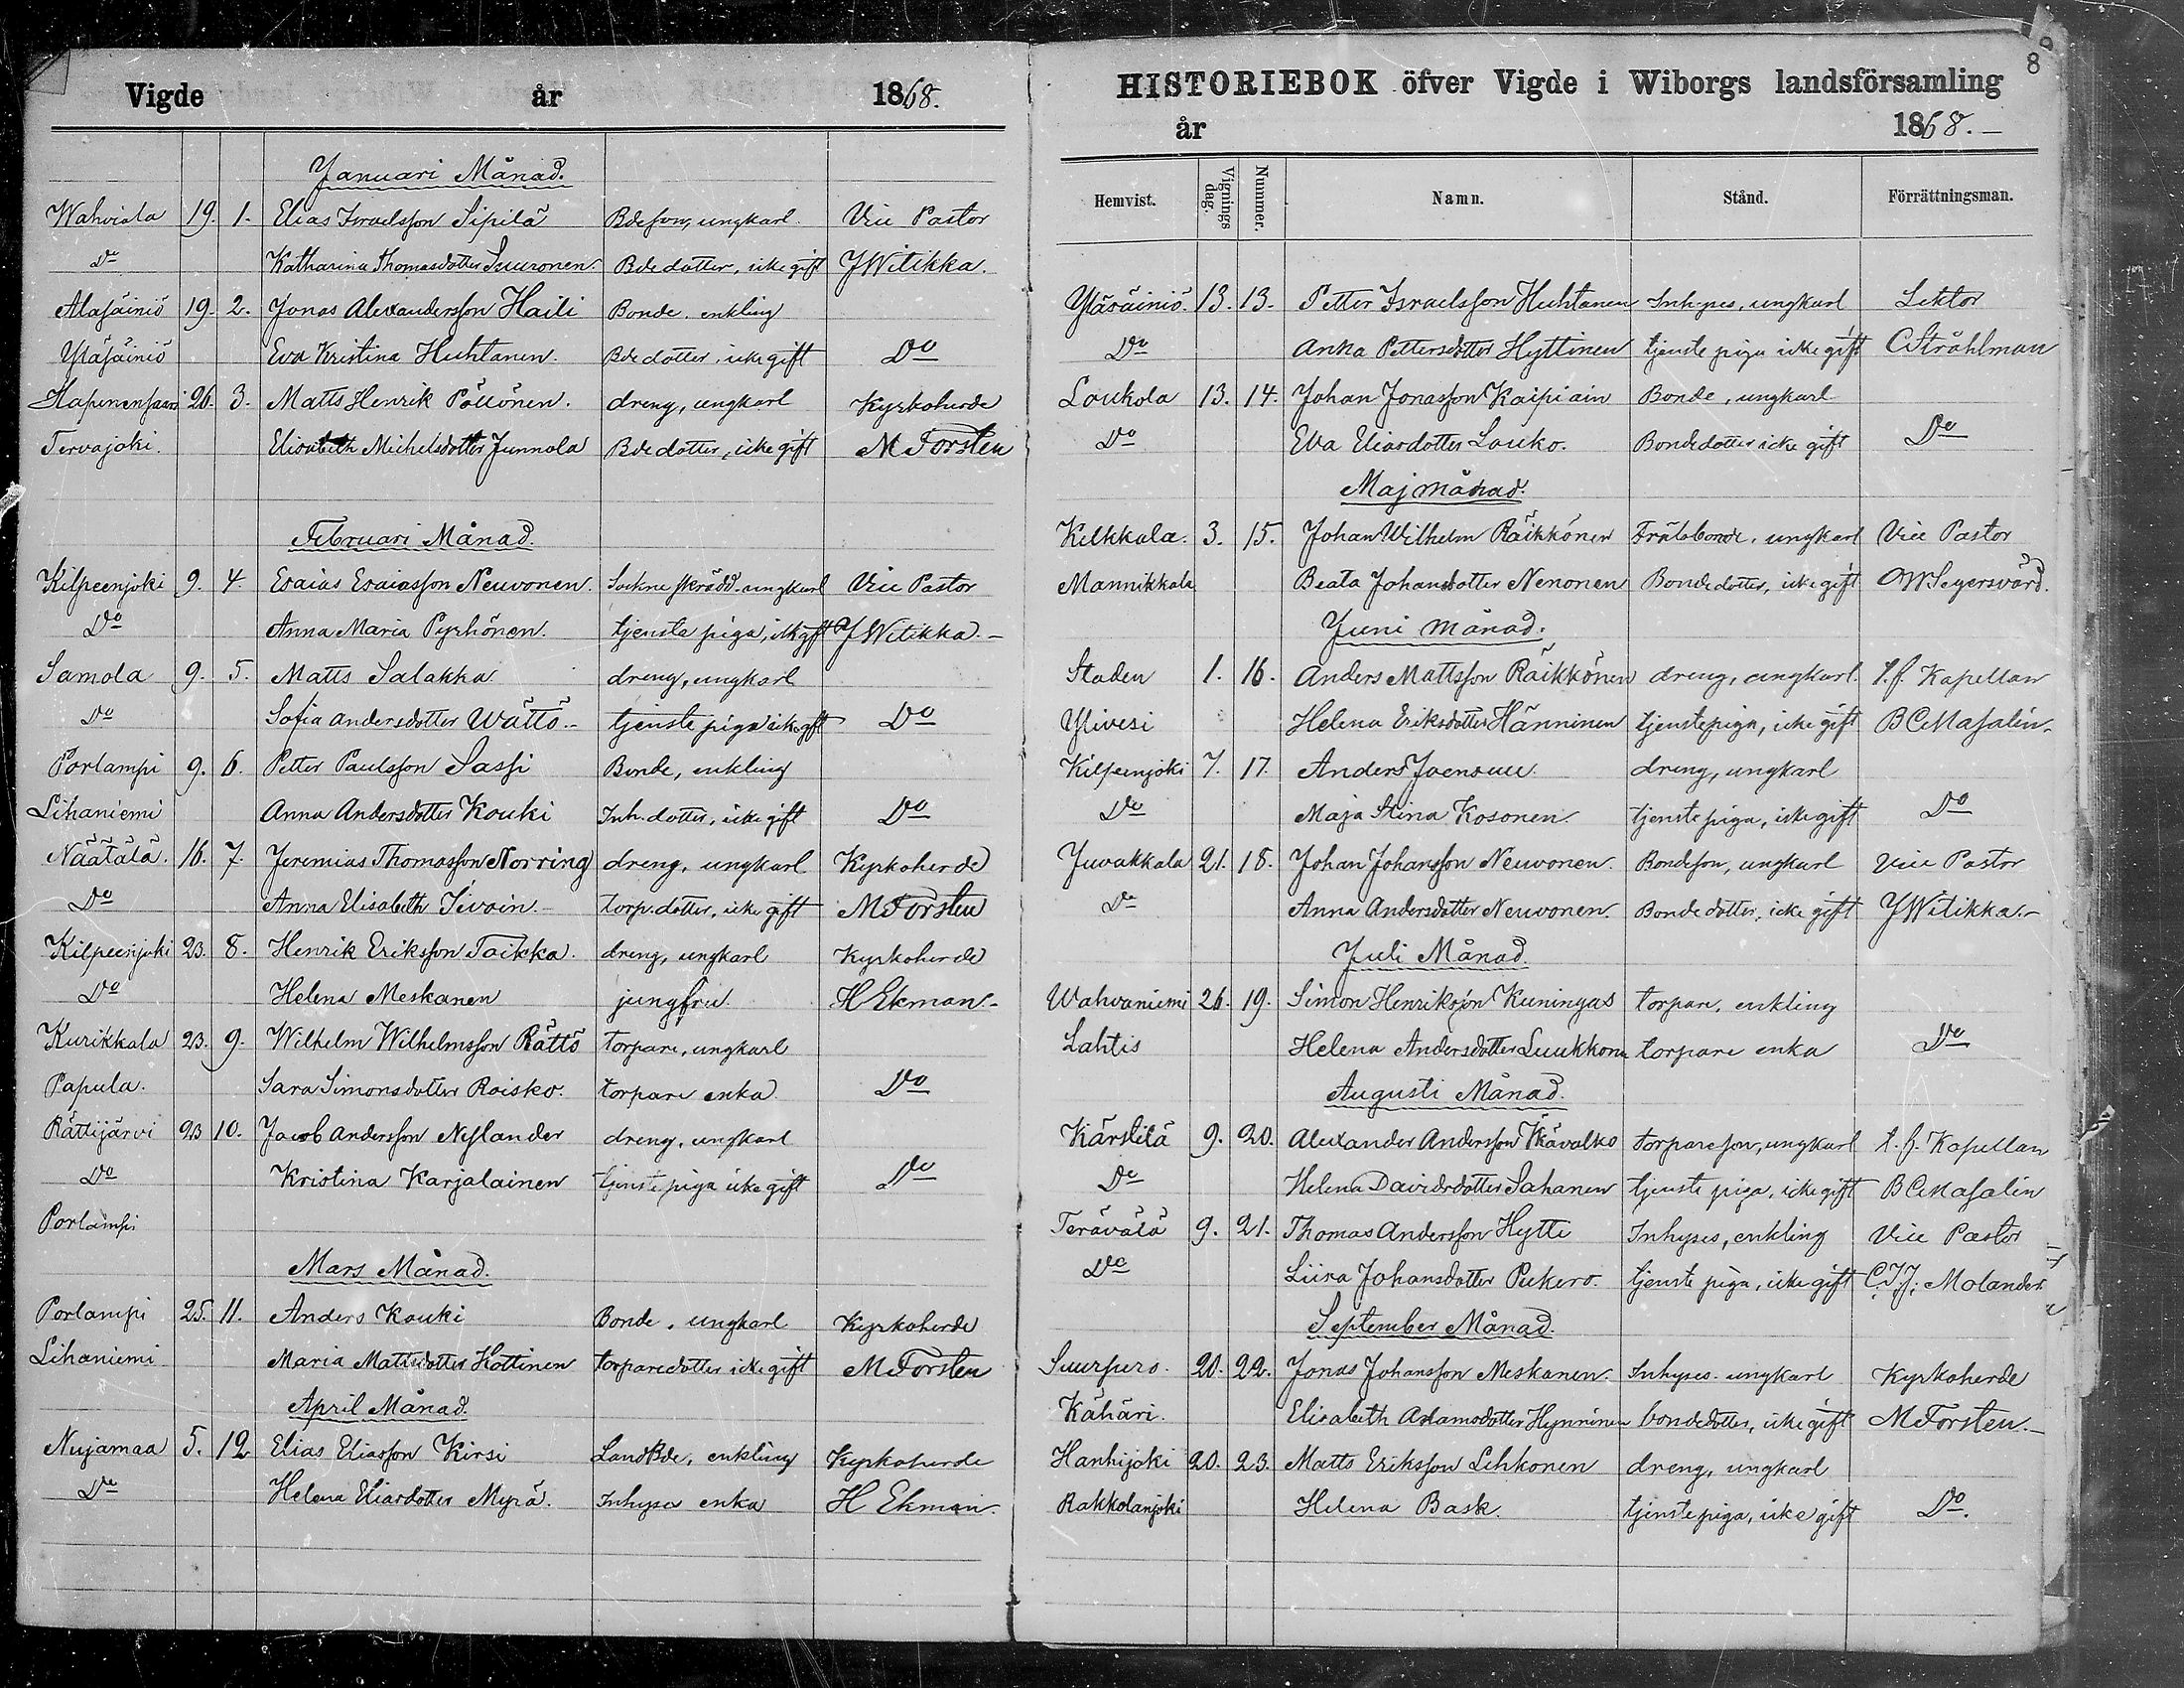 Vigde år 1868.
Januari Månad.
Wahviala 19. 1. Elias Israelsson Sipilä Bdeson, ungkarl. Vice Pastor
Do Katharina Thomasdotter Suuronen. Bdedotter, icke gift J Witikka.
Alasäiniö 19. 2. Jonas Alexandersson Haili Bonde. enkling
Yläsäiniö Eva Kristina Huhtanen. Bdedotter, icke gift Do
Hapenensaari 26. 3. Matts Henrik Pöllönen. dreng, ungkarl Kyrkoherde
Tervajoki. Elisabeth Michelsdotter Junnola Bdedotter, icke gift M Forsten
Februari Månad.
Kilpeenjoki 9. 4. Esaias Esaiasson Neuvonen. Sockne skrädd. ungkarl Vice Pastor
Do Anna Maria Pyrhönen. tjenste piga, ick gft J Witikka.-
Samola 9. 5. Matts Salakka dreng, ungkarl
Do Sofia Andersdotter Wättö.- tjenste piga icke gft Do
Porlampi 9. 6. Petter Paulsson Sassi Bonde, enkling
Lihaniemi Anna Andersdotter Kouki Inh. dotter, icke gift Do
Näätälä. 16. 7. Jeremias Thomasson Norring dreng, ungkarl Kyrkoherde
Do Anna Elisabeth Sivoin.- torp. dotter, icke gift M Forsten
Kilpeenjoki 23. 8. Henrik Eriksson Taikka. dreng, ungkarl Kyrkoherde
Do Helena Meskanen jungfru. H Ekman-
Kurikkala 23. 9. Wilhelm Wilhelmsson Rättö torpare, ungkarl
Papula. Sara Simonsdotter Roisko. torpare enka Do
Rättijärvi 23 10. Jacob Andersson Nylander dreng, ungkarl
Do Kristina Karjalainen tjenste piga icke gift Do
Porlampi
Mars Månad.
Porlampi 25. 11. Anders Kouki Bonde, ungkarl Kyrkoherde
Lihaniemi Maria Mattsdotter Hottinen torparedotter icke gift M Forsten
April Månad.
Nujamaa 5. 12 Elias Eliasson Kirsi LandBde, enkling Kyrkoherde
Do Helena Eliasdotter Myrä. Inhyses enka H Ekman.
8
HISTORIEBOK öfver Vigde i Wiborgs landsförsamling
år 1868.-
Hemvist. Vignings dag. Nummer. Namn. Stånd. Förrättningsman.
Yläsäiniö. 13. 13. Petter Israelsson Huhtanen Inhyses, ungkarl Lektor
Do Anna Pettersdotter Hyttinen tjenste piga icke gift C Stråhlman
Loukola 13. 14. Johan Jonasson Kaipiain Bonde, ungkarl
Do Eva Eliasdotter Louko. Bondedotter icke gift Do
Maj månad.
Kelkkala. 3. 15. Johan Wilhelm Räikkönen Frälsbonde, ungkarl Vice Pastor
Mannikkala Beata Johansdotter Nenonen Bondedotter, icke gift O W Segersvärd.
Juni månad.
Staden 1. 16. Anders Mattsson Räikkönen dreng, ungkarl. t.f. Kapellan
Ylivesi Helena Eriksdotter Hänninen tjenstepiga, icke gift B C Masalin.
Kilpeenjoki 7. 17. Anders Joensuu. dreng, ungkarl
Do Maja Stina Kosonen. tjenste piga, icke gift Do
Juvakkala 21. 18. Johan Johansson Neuvonen. Bondeson, ungkarl Vice Pastor
Do Anna Andersdotter Neuvonen. Bonde dotter, icke gift J Witikka.-
Juli Månad.
Wahvaniemi 26. 19. Simon Henriksson Kuningas torpare, enkling
Lahtis Helena Andersdotter Luukkonen torpare enka Do
Augusti Månad.
Kärstilä 9. 20. Alexander Andersson Kävalko torpareson, ungkarl t. f. Kapellan
Do Helena Davidsdotter Sahanen tjenste piga, icke gift B C Masalin
Terävälä 9. 21. Thomas Andersson Hytti Inhyses, enkling Vice Pastor
Do Liisa Johansdotter Pukero. tjenste piga, icke gift C. J. J. Molander.
September Månad.
Suurpero. 20. 22. Jonas Johansson Meskanen. Inhyses. ungkarl Kyrkoherde
Kähäri. Elisabeth Adamsdotter Hynninen bondedotter, icke gift M Forsten.-
Hanhijoki 20. 23. Matts Eriksson Lihkonen dreng, ungkarl
Rakkolanjoki Helena Bask. tjenste piga, icke gift Do.